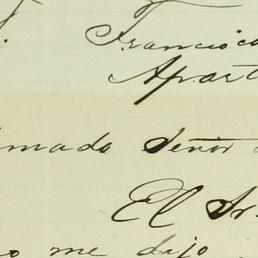 Francisco
Apart
mado Señor
El Sr.
me dijo